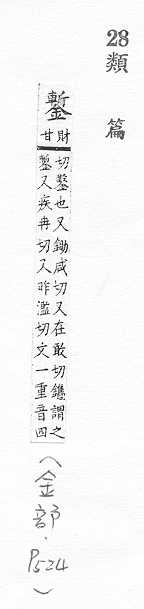 28
類篇
鏨
財
甘
切鑿也又鋤咸切又在敢切鐫謂之
鏨又疾冉切又昨濫切文一重音四
（金部．P524）